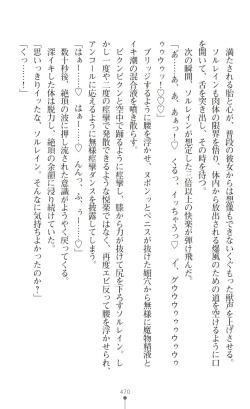 満たされる胎と心が、普段の彼女からは想もできないくぐもった獣声を上げさせる。
ソルレインも肉体の限界を悟り、体内から放出される爆風のための道を空けるように口
を開いて、舌を突き出し、その時を待つ。
次の瞬間、ソルレインが想定した三倍以上の快楽が弾け飛んだ。
「お……あ、あ、あぁっ……♡ くるっ、イッちゃうっ♡ イ、グゥウゥゥゥウゥウゥ
ゥウゥッ！♡♡♡」
ブリッジするように腰を浮かせ、ヌポンッとペニスが抜けた媚穴から無様に魔物精液と
イキ潮の混合液を噴き散らす。
ビクンビクンと空中で踊るように痙攣し、膝から力が抜けて尻を下ろすソルレイン。し
かし一度や二度の痙攣で発散できるような悦楽ではなく、再度エビ反って腰を浮かせられ、
アンコールに応えるように無様痙攣ダンスを披露してしまう。
「はぁー……♡ はぁー……♡ んんっ、ふ、ぅー……♡」
数十秒後、絶頂の波に押し流された意識がようやく戻ってくる。
深イキした体は脱力し、絶頂の余韻に浸り続けている。
「思いっきりイッたな、ソルレイン。そんなに気持ちよかったのか？」
「くっ……！」
470